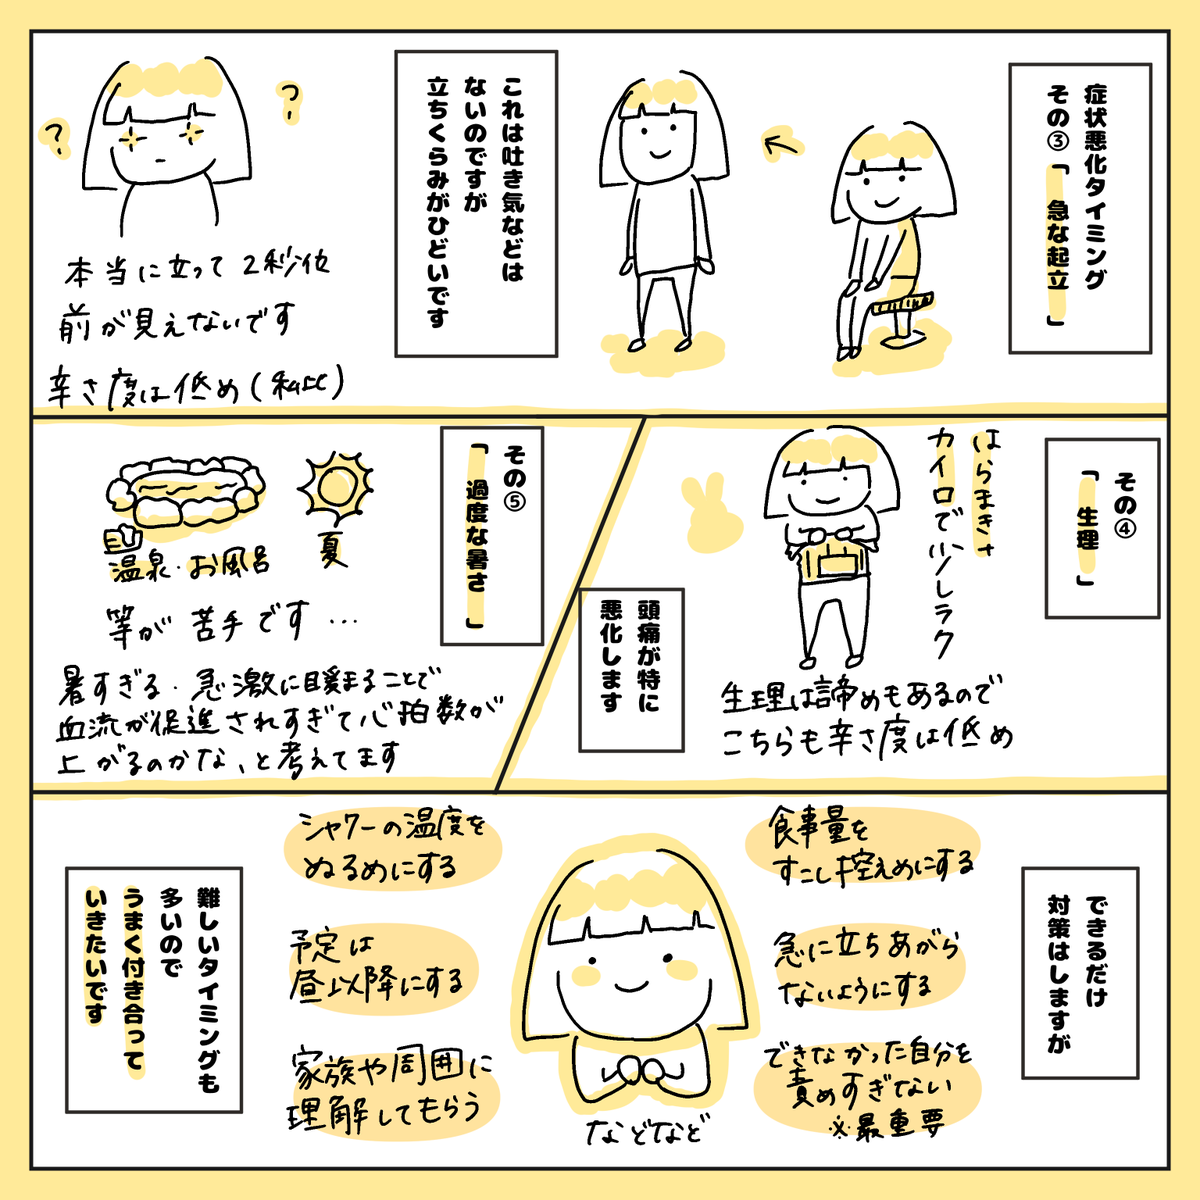 症状悪化タイミング
その③「急な起立」
これは吐き気などは
ないのですが
立ちくらみがひどいです
?
?
本当に立って2秒位
前が見えないです
辛さ度は低め(私比)
その④
「生理」
はらまきや
カイロで少しラク
頭痛が特に
悪化します
生理は諦めもあるので
こちらも辛さ度は低め
その⑤
「過度な暑さ」
夏
温泉・お風呂
等が苦手です…
暑すぎる・急激に暖まることで
血流が促進されすぎて心拍数が
上がるのかな、と考えてます
できるだけ
対策はしますが
食事量を
すこし控えめにする
急に立ちあがら
ないようにする
できなかった自分を
責めすぎない
※最重要
シャワーの温度を
ぬるめにする
予定は
昼以降にする
家族や周囲に
理解してもらう
などなど
難しいタイミングも
多いので
うまく付き合って
いきたいです